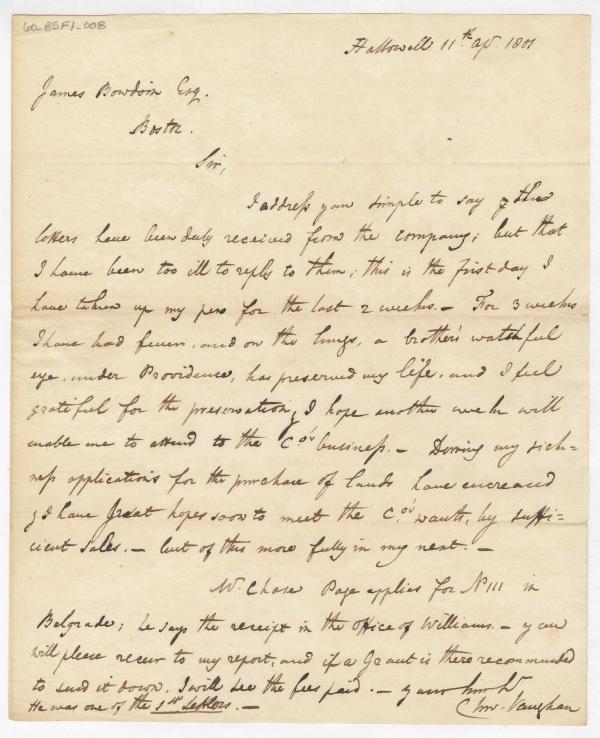 60.85F1-008
Hallowell 11th. ap. 1801
James Bowdoin Esq.
Boston.
Sir,
I address you simple to say
letters have been duly received from the company; but that
I have been too ill to reply to them; this is the first day I
have taken up my pen for the last 2 weeks. - For 3 weeks
I have had fever, and on the lungs, a brother's watchful
eye, under Providence, has preserved my life, and I feel
grateful for the preservation, & I hope another week will
enable me to attend to the Co's business. - During my sick=
ness applications for the purchase of lands have encreased
& I have Great hopes soon to meet the Co's wants, by suffi=
cient sales. - but of this more fully in my next. -
Mr. Chase Page applies for N 111 in
Belgrade; he says the receipt in the office of Williams. - you
will please recur to my report, and if a Grant is there recommended
to send it down. I will see the fees paid. - your
He was one of the 1st settlers. - Chs. Vaughan